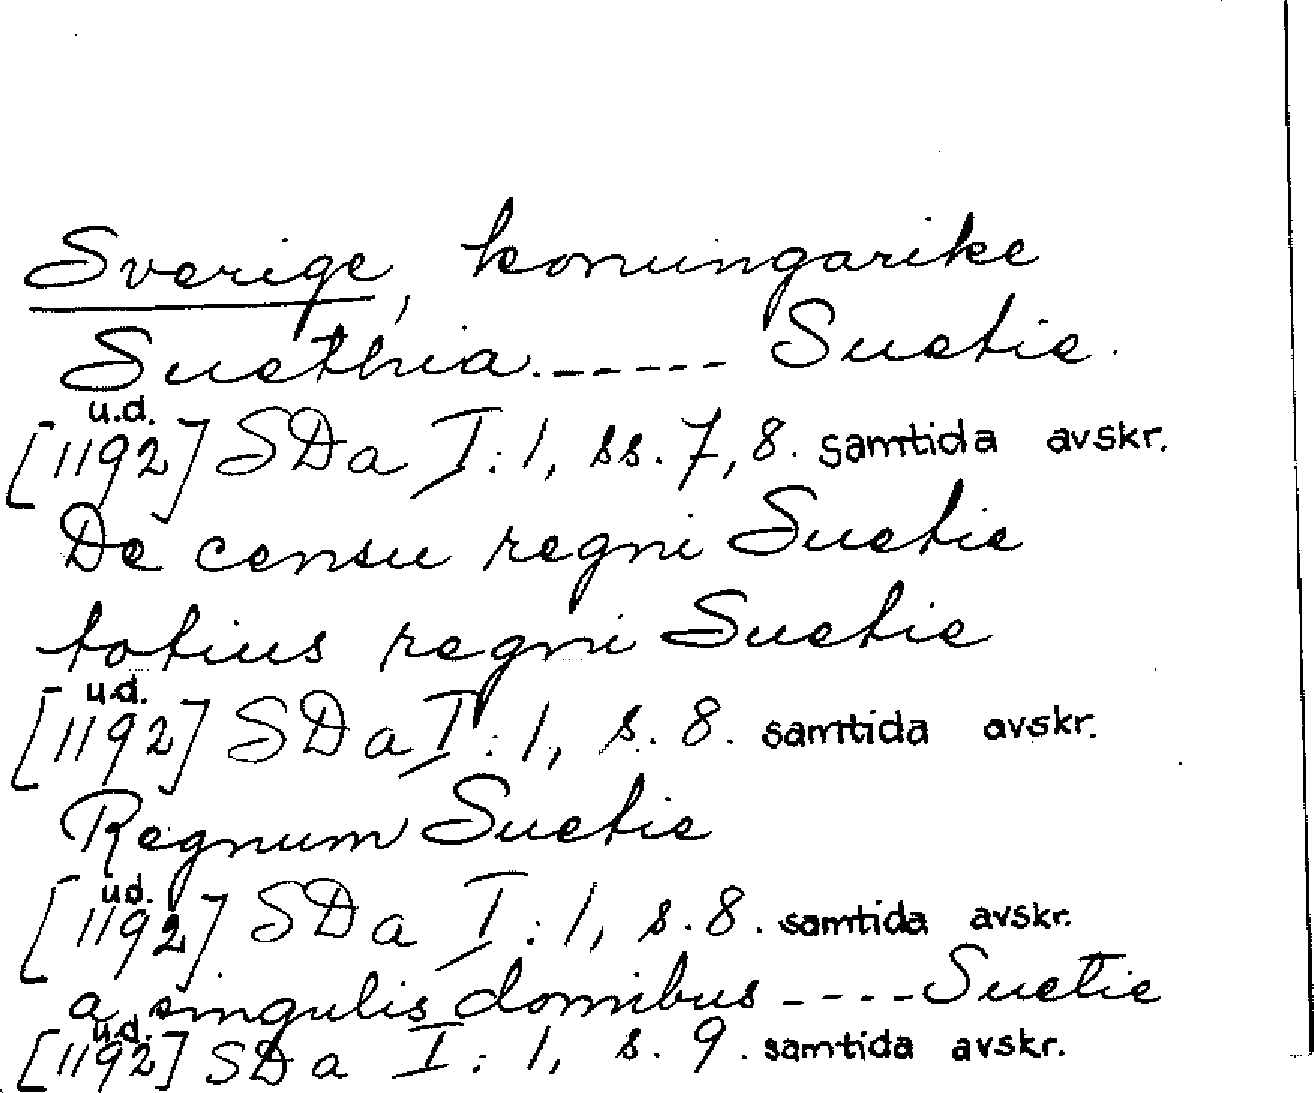 Sverige, konungarike
Suethia.------ Suetie.
u.d.
[1192] SDa I:1, ss. 7, 8. samtida avskr.
De censu regni Suetie
totius regni Suetie
u.d.
[1192] SDa I:1, s. 8. samtida avskr.
Regnum Suetie
u.d.
[1192] SDa I:1, s. 8. samtida avskr.
a singulis domibus ---- Suetie
u.d.
[1192] SDa I:1, s. 9. samtida avskr.